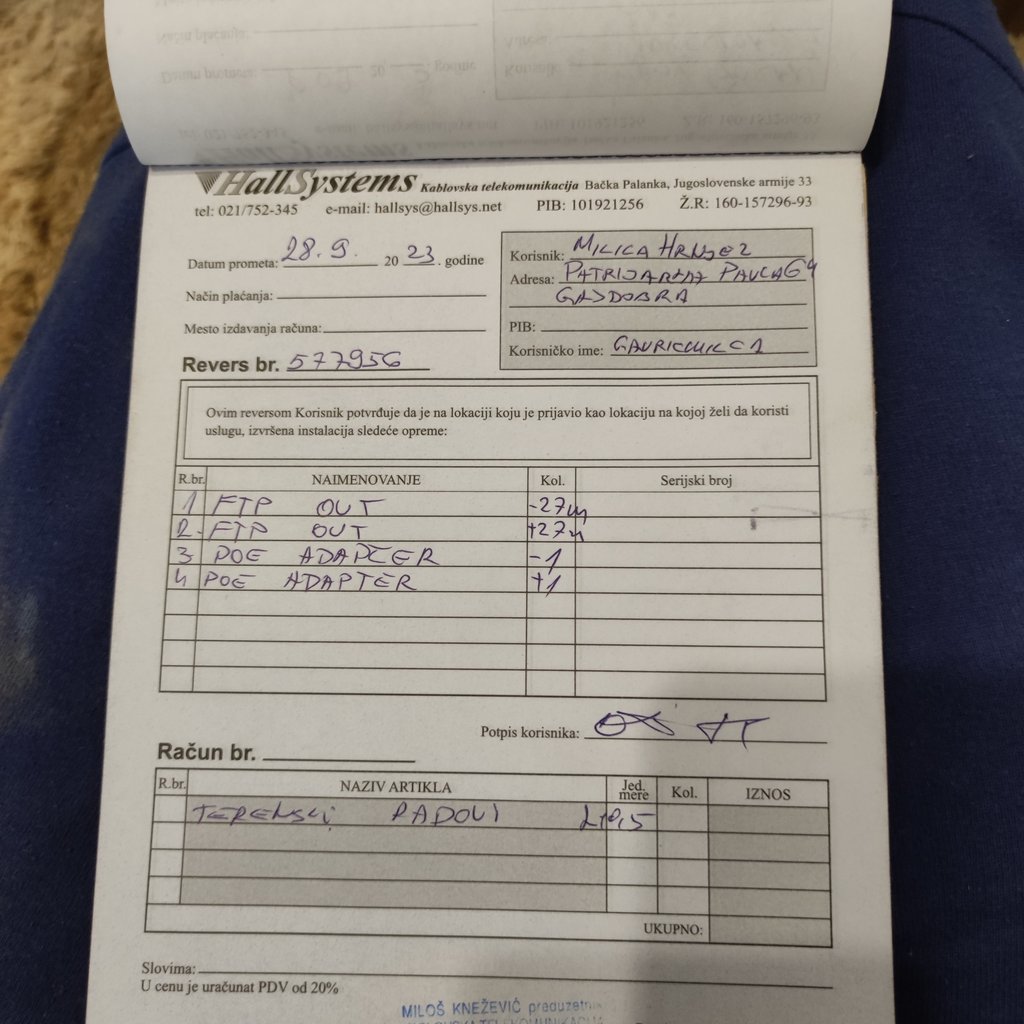 HallSystems Kablovska telekomunikacija Bačka Palanka, Jugoslovenske armije 33
tel: 021/752-345 e-mail: hallsys@hallsys.net PIB: 101921256 Ž.R: 160-157296-93
Datum prometa: 28.9. 20 23. godine
Način plaćanja:
Mesto izdavanja računa:
Revers br. 577956
Korisnik: MILICA
Adresa: PATRIJARHA PAVLA 64
GAJDOBRA
PIB:
Korisničko ime:
Ovim reversom Korisnik potvrđuje da je na lokaciji koju je prijavio kao lokaciju na kojoj želi da koristi
uslugu, izvršena instalacija sledeće opreme:
R.br. NAIMENOVANJE Kol. Serijski broj
1 FTP OUT -27m
2. FTP OUT +27m
3 POE ADAPTER -1
4 POE ADAPTER +1
Potpis korisnika:
Račun br.
R.br. NAZIV ARTIKLA Jed. mere Kol. IZNOS
TERENSKI RADOVI
UKUPNO:
Slovima:
U cenu je uračunat PDV od 20%
MILOŠ KNEŽEVIĆ